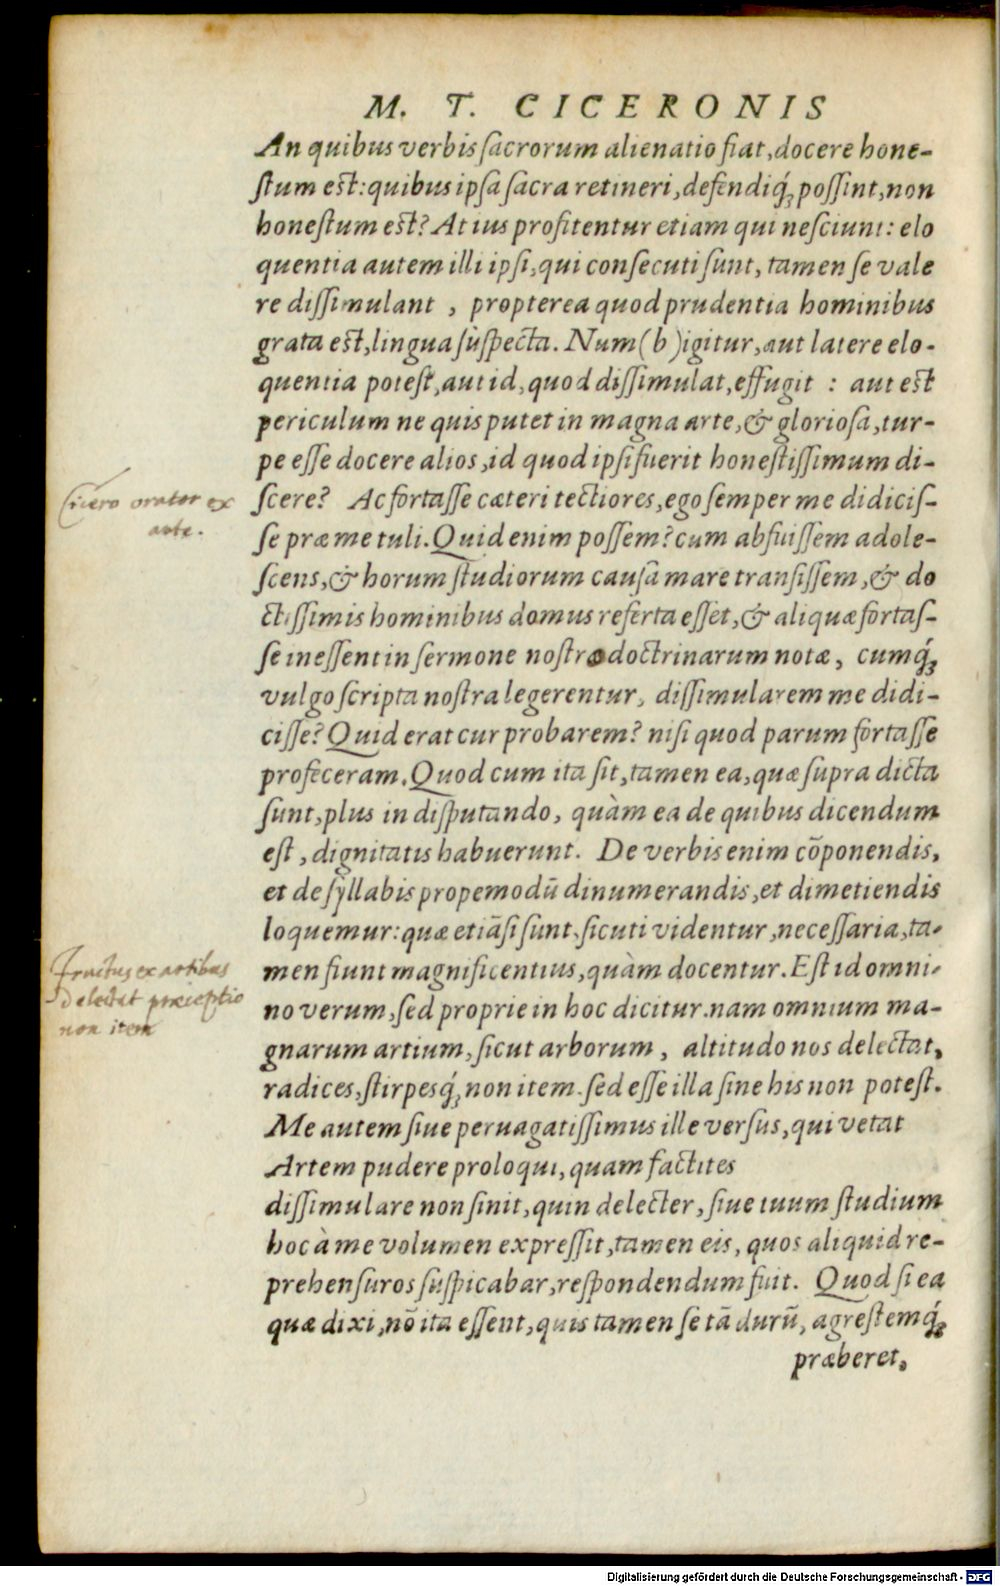 M. T. CICERONIS
An quibus verbis ſacrorum alienatio fiat, docere hone-
ſtum eſt: quibus ipſa ſacra retineri, defendiq́; poſſint, non
honeſtum eſt? At ius profitentur etiam qui neſciunt: elo
quentia autem illi ipſi, qui conſecuti ſunt, tamen ſe vale
re diſſimulant , propterea quod prudentia hominibus
grata eſt, lingua ſuſpecta. Num (b) igitur, aut latere elo-
quentia poteſt, aut id, quod diſſimulat, effugit : aut eſt
periculum ne quis putet in magna arte, & glorioſa, tur-
pe eſſe docere alios, id quod ipſi fuerit honeſtiſſimum di-
ſcere? Ac fortaſſe cæteri tectiores, ego ſemper me didiciſ-
ſe præ me tuli. Quid enim poſſem? cum abfuiſſem adole-
ſcens, & horum ſtudiorum cauſa mare tranſiſſem, & do
ctiſſimis hominibus domus referta eſſet, & aliquæ fortaſ-
ſe ineſſent in ſermone noſtro doctrinarum notæ, cumq́;
vulgo ſcripta noſtra legerentur, diſſimularem me didi-
ciſſe? Quid erat cur probarem? niſi quod parum fortaſſe
profeceram. Quod cum ita ſit, tamen ea, quæ ſupra dicta
ſunt, plus in diſputando, quàm ea de quibus dicendum
eſt, dignitatis habuerunt. De verbis enim cōponendis,
et de ſyllabis propemodū dinumerandis, et dimetiendis
loquemur: quæ etiāſi ſunt, ſicuti videntur, neceſſaria, ta-
men fiunt magnificentius, quàm docentur. Eſt id omni-
no verum, ſed proprie in hoc dicitur. nam omnium ma-
gnarum artium, ſicut arborum, altitudo nos delectat,
radices, ſtirpesq́; non item. ſed eſſe illa ſine his non poteſt.
Me autem ſiue peruagatiſſimus ille verſus, qui vetat
Artem pudere proloqui, quam factites
diſſimulare non ſinit, quin delecter, ſiue tuum ſtudium
hoc à me volumen expreſſit, tamen eis, quos aliquid re-
prehenſuros ſuſpicabar, reſpondendum fuit. Quod ſi ea
quæ dixi, nō ita eſſent, quis tamen ſe tā durū, agreſtemq́;
præberet,
Cicero orator ex
arte.
Fructus ex artibus
delectat præceptio
non item
Digitalisierung gefördert durch die Deutsche Forschungsgemeinschaft - DFG